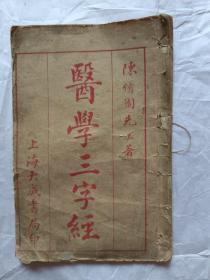 陳修園先生著
醫學三字經
上海大成書局印